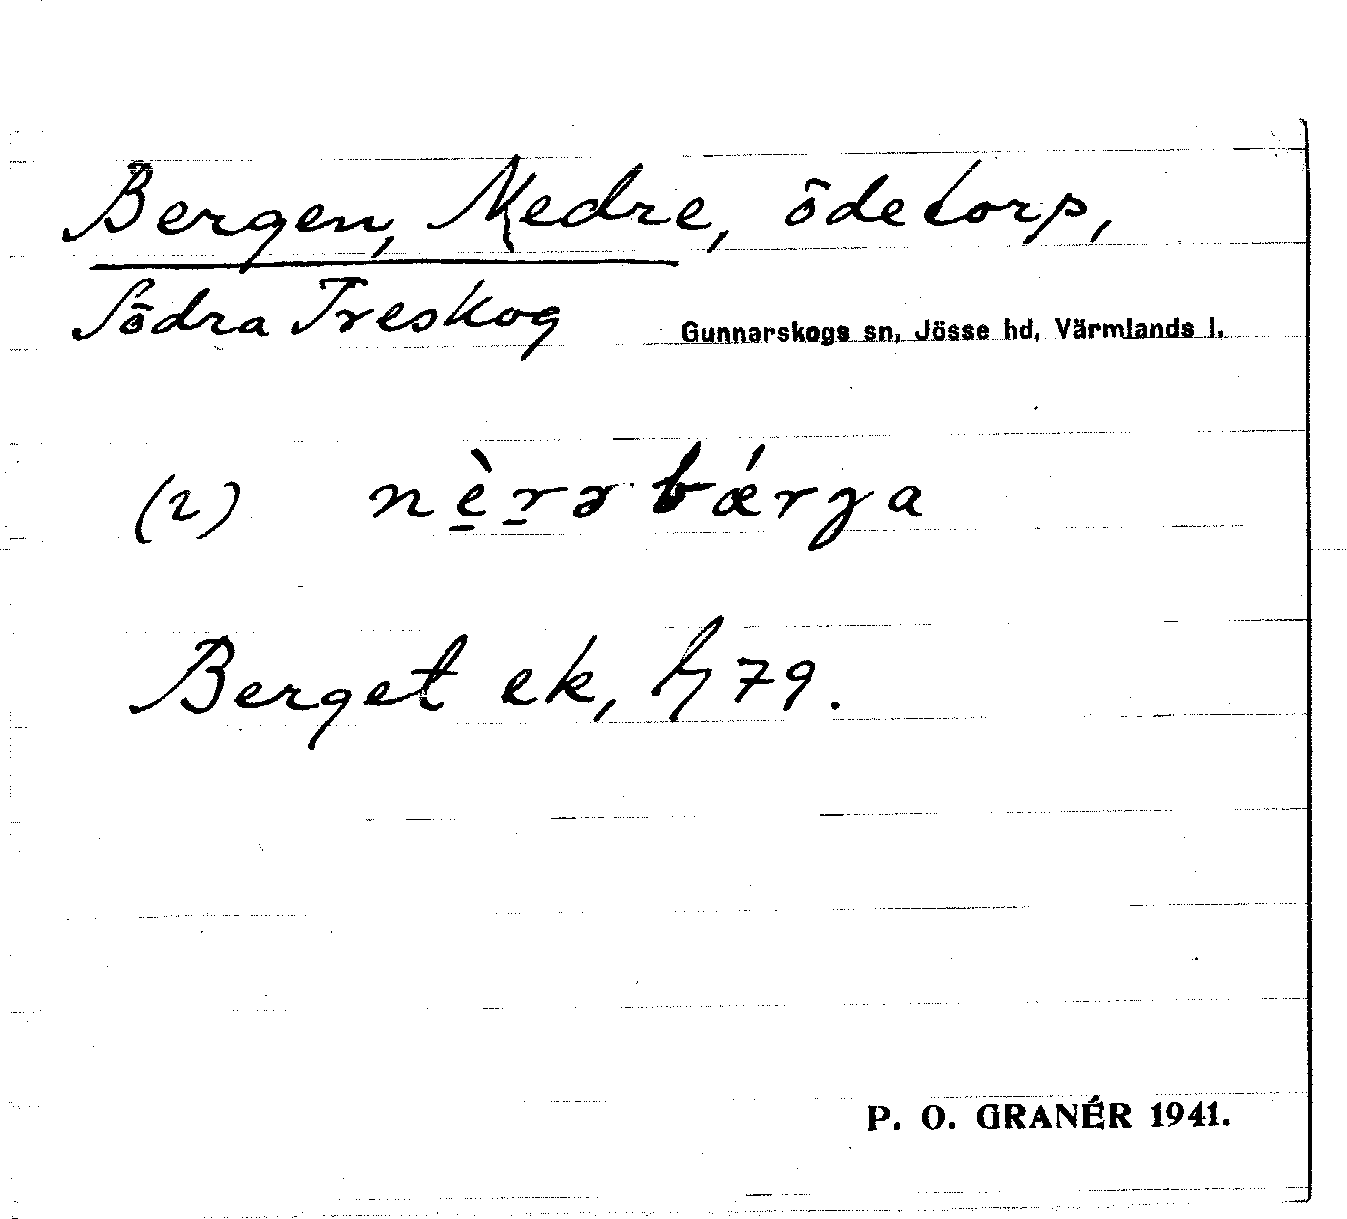 Bergen, Nedre, ödetorp,
Södra Treskog Gunnarskogs sn, Jösse hd, Värmlands l.
(2) nè̱ṟə bǽrga
Berget ek, h 79.
P. O. GRANÉR 1941.